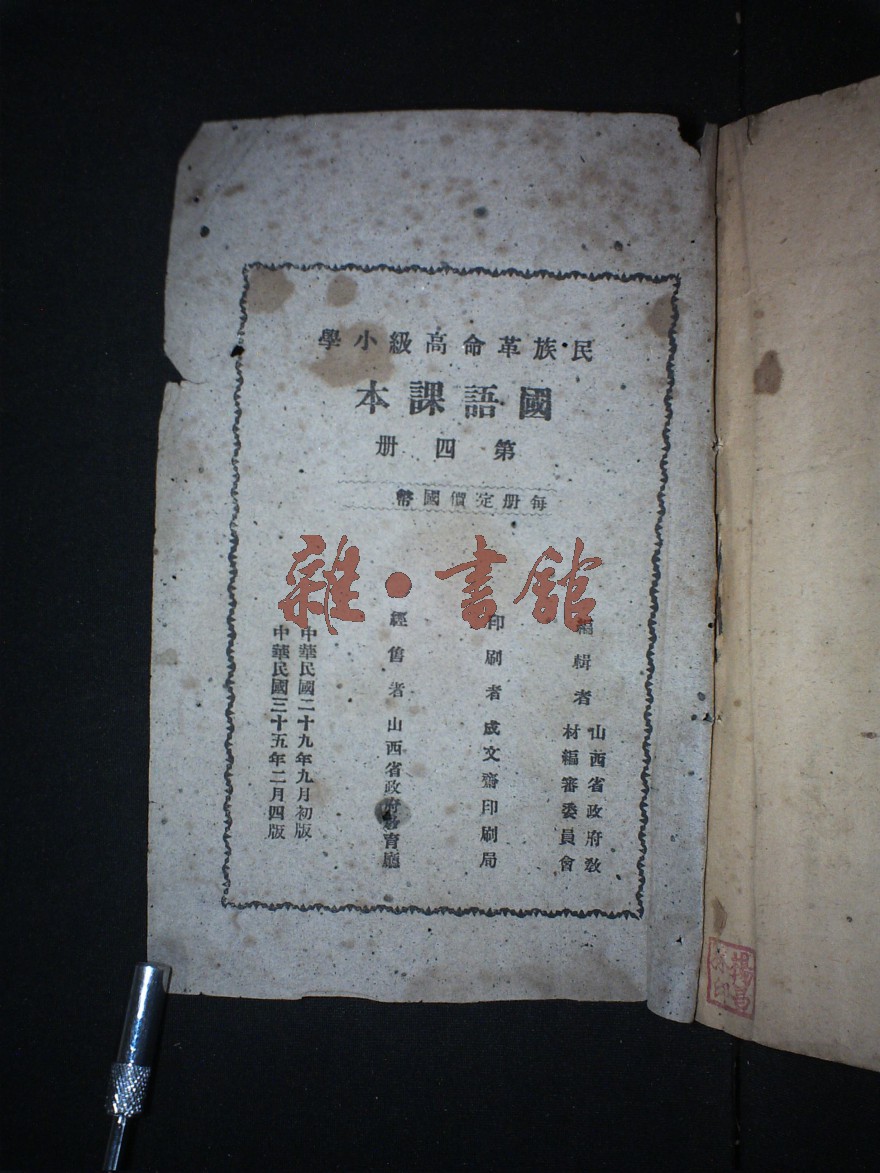 民族革命高級小學
國語課本
第四册
每册定價國幣
編輯者 山西省政府教
材編審委員會
印刷者 成文齋印刷局
經售者 山西省政府教育廳
中華民國二十九年九月初版
中華民國三十五年二月四版
雜·書館